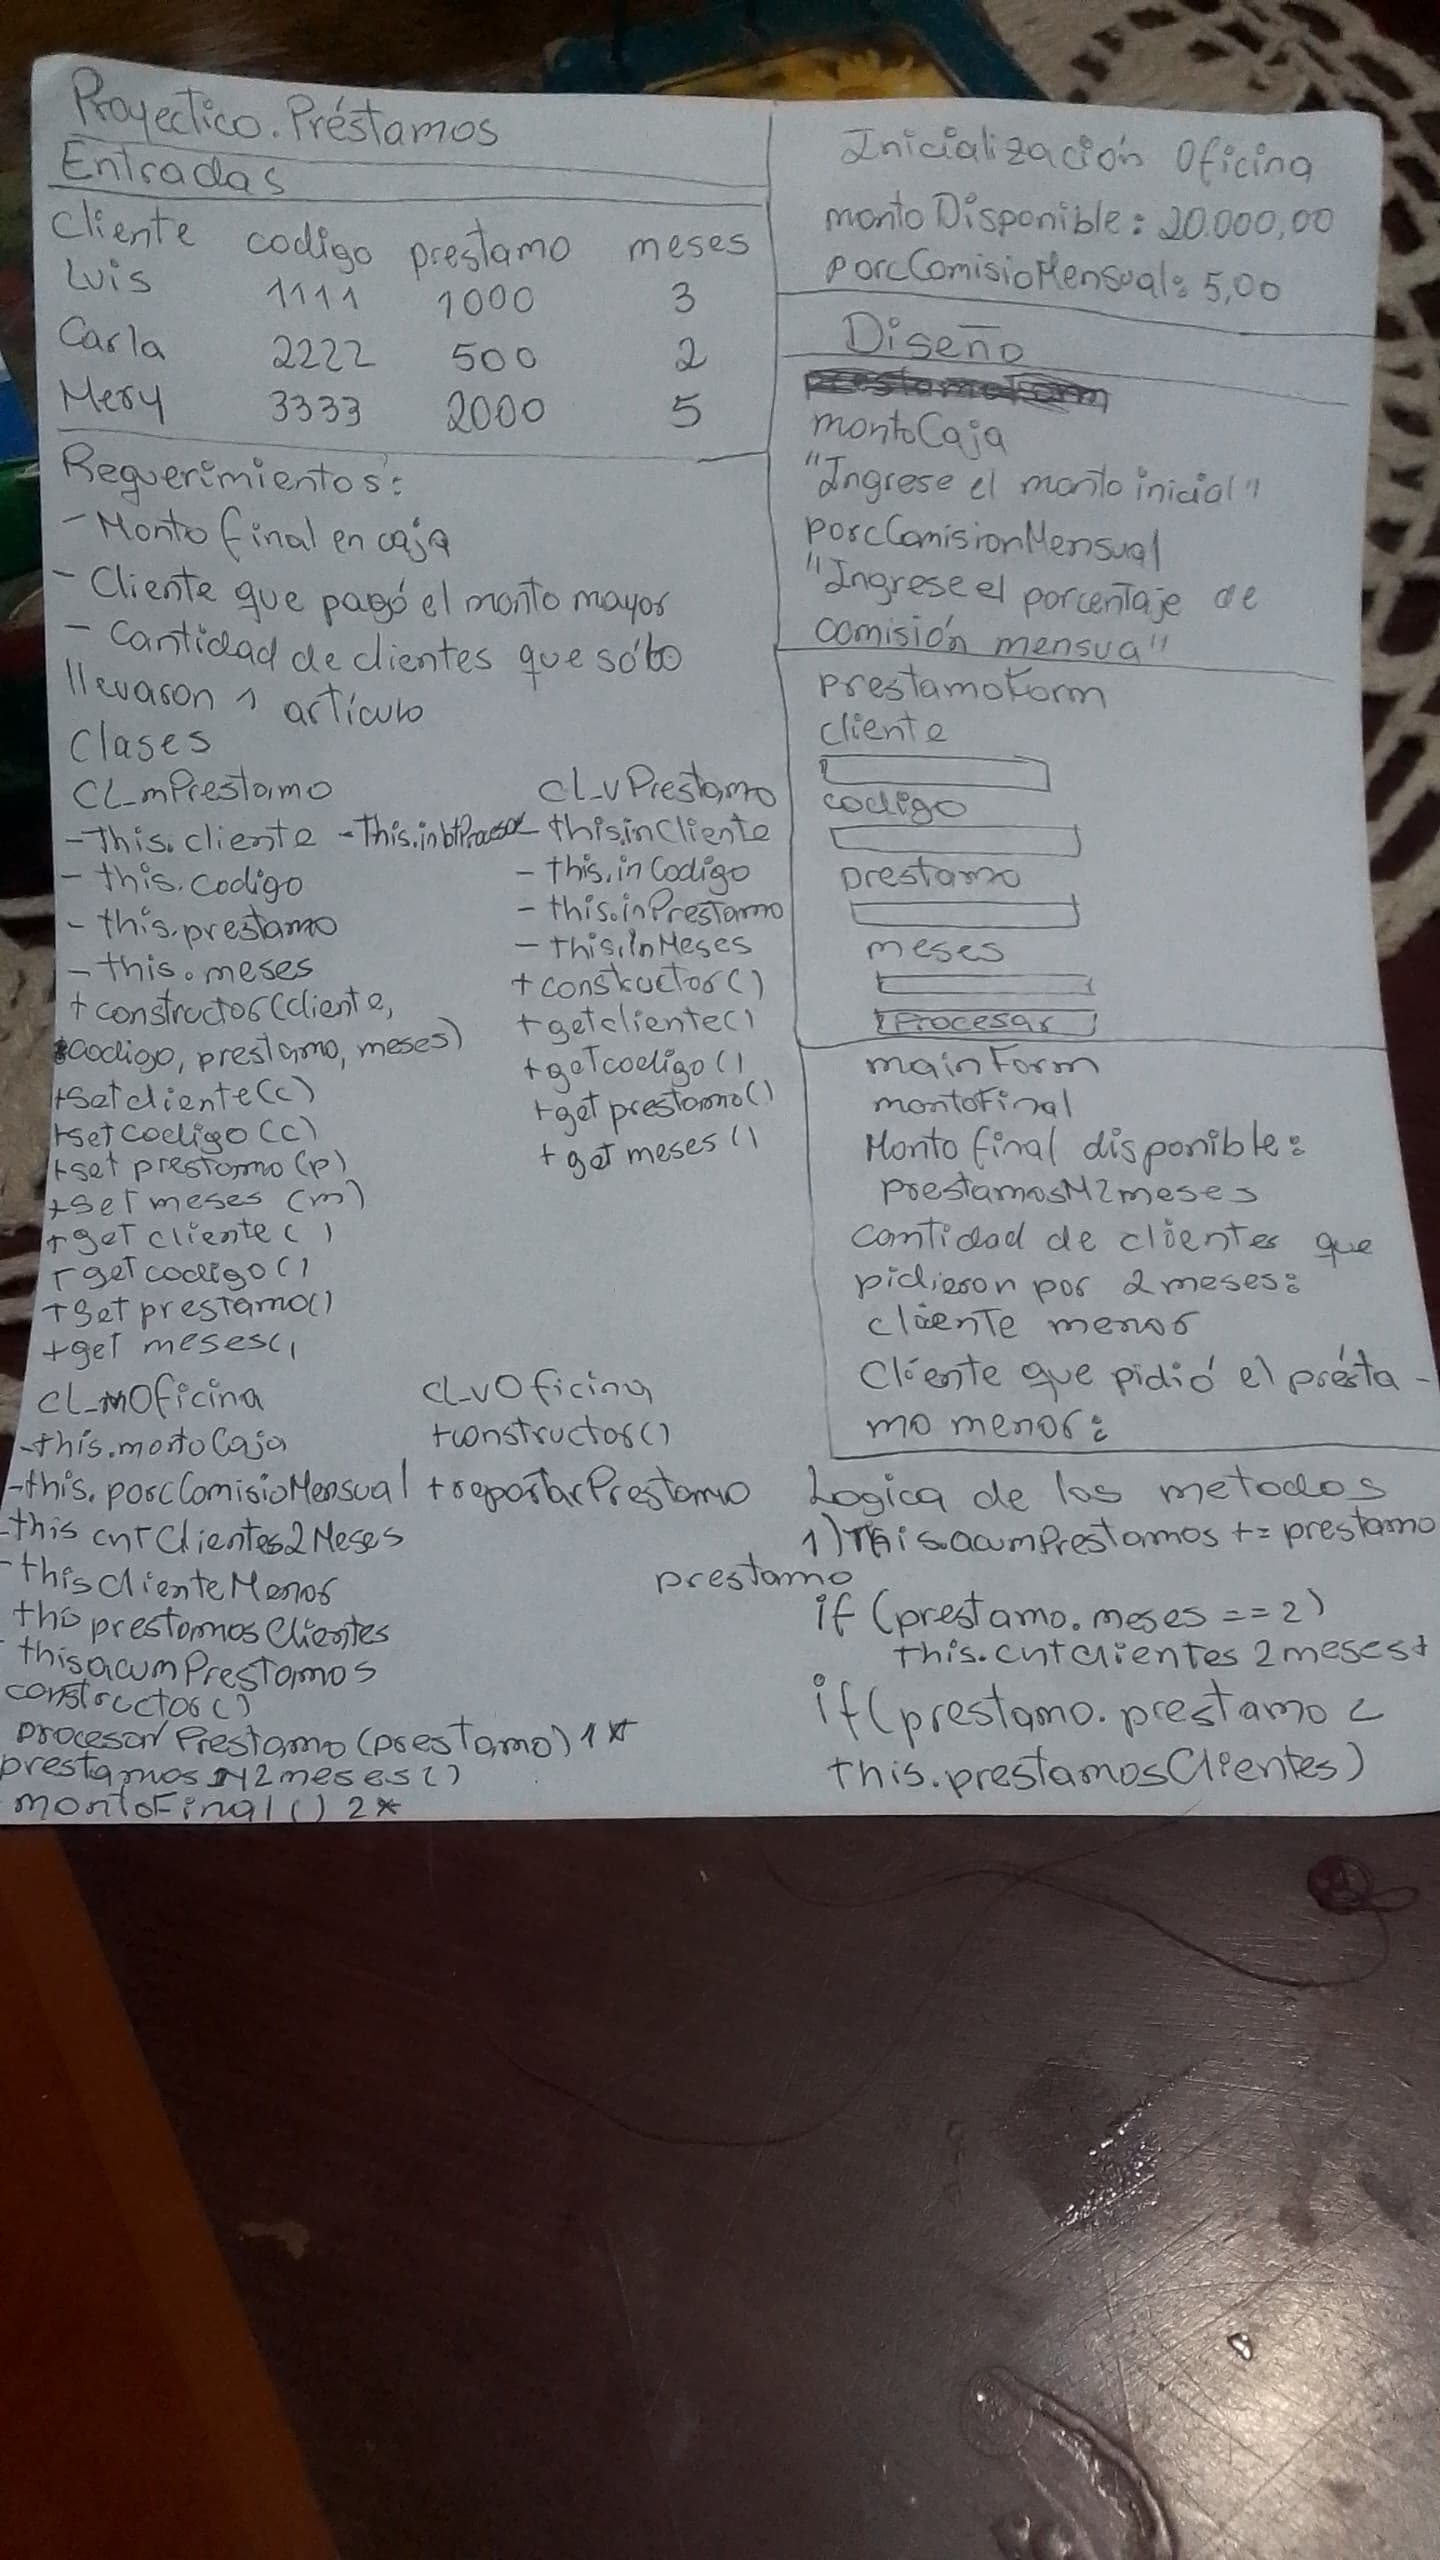 Proyectico.Préstamos
Entradas
Cliente codigo prestamo meses
Luis 1111 1000 3
Carla 2222 500 2
Mery 3333 2000 5
Requerimientos:
- Monto final en caja
- Cliente que pagó el monto mayor
- Cantidad de clientes que sólo
llevaron 1 artículo
Clases
CL_mPrestamo
- This.cliente - This.inbtProcesar
- this.codigo
- this.prestamo
- this.meses
+ constructor(cliente,
codigo, prestamo, meses)
+Setcliente(c)
+setcodigo(c)
+set prestamo(p)
+set meses (m)
+get cliente ()
+getcodigo()
+get prestamo()
+get meses()
CL_vPrestamo
- this.inCliente
- this.inCodigo
- this.inPrestamo
- this.InMeses
+ constructor()
+getcliente()
+getcodigo()
+get prestamo()
+ get meses()
CL_mOficina
-this.montoCaja
-this.porcComisioMensual
-this cntClientes2Meses
-this ClienteMenor
this prestamosClientes
this acumPrestamos
constructor()
procesar Prestamo(prestamo) 1*
prestamos M2meses()
montoFinal() 2*
CL_vOficina
+constructor()
+reportarPrestamo
Inicialización Oficina
montoDisponible: 20.000,00
porcComisioMensual: 5,00
Diseño
montoCaja
"Ingrese el monto inicial"
porcComisionMensual
"Ingrese el porcentaje de
comisión mensua"
prestamoForm
cliente
codigo
prestamo
meses
Procesar
mainForm
montoFinal
Monto final disponible:
prestamosM2meses
cantidad de clientes que
pidieron por 2 meses:
cliente menor
Cliente que pidió el présta-
mo menor:
Logica de los metodos
1) This.acumPrestamos += prestamo
prestamo
if (prestamo.meses == 2)
this.cntClientes 2meses+
if(prestamo.prestamo <
this.prestamosClientes)